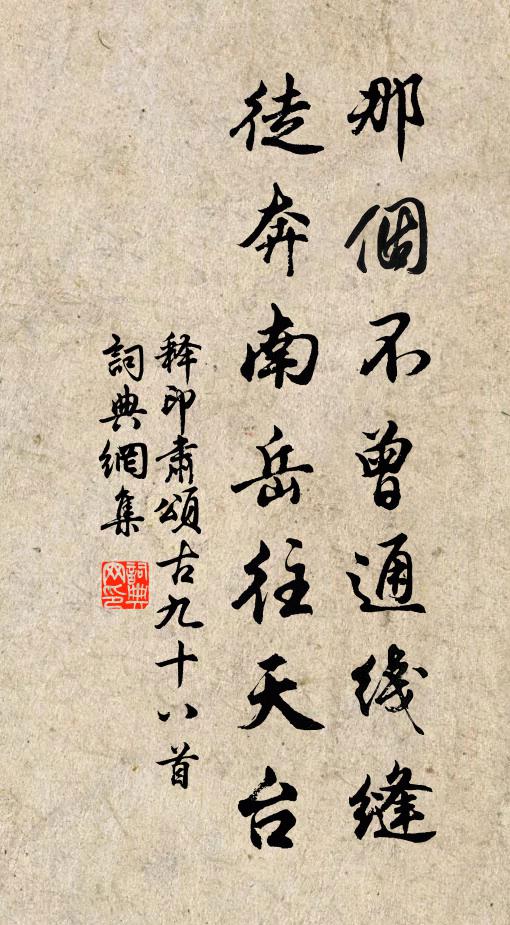 那個不曾通线縫
徒奔南岳往天台
释印肅頌古九十八首
詞典網集
詞典网印